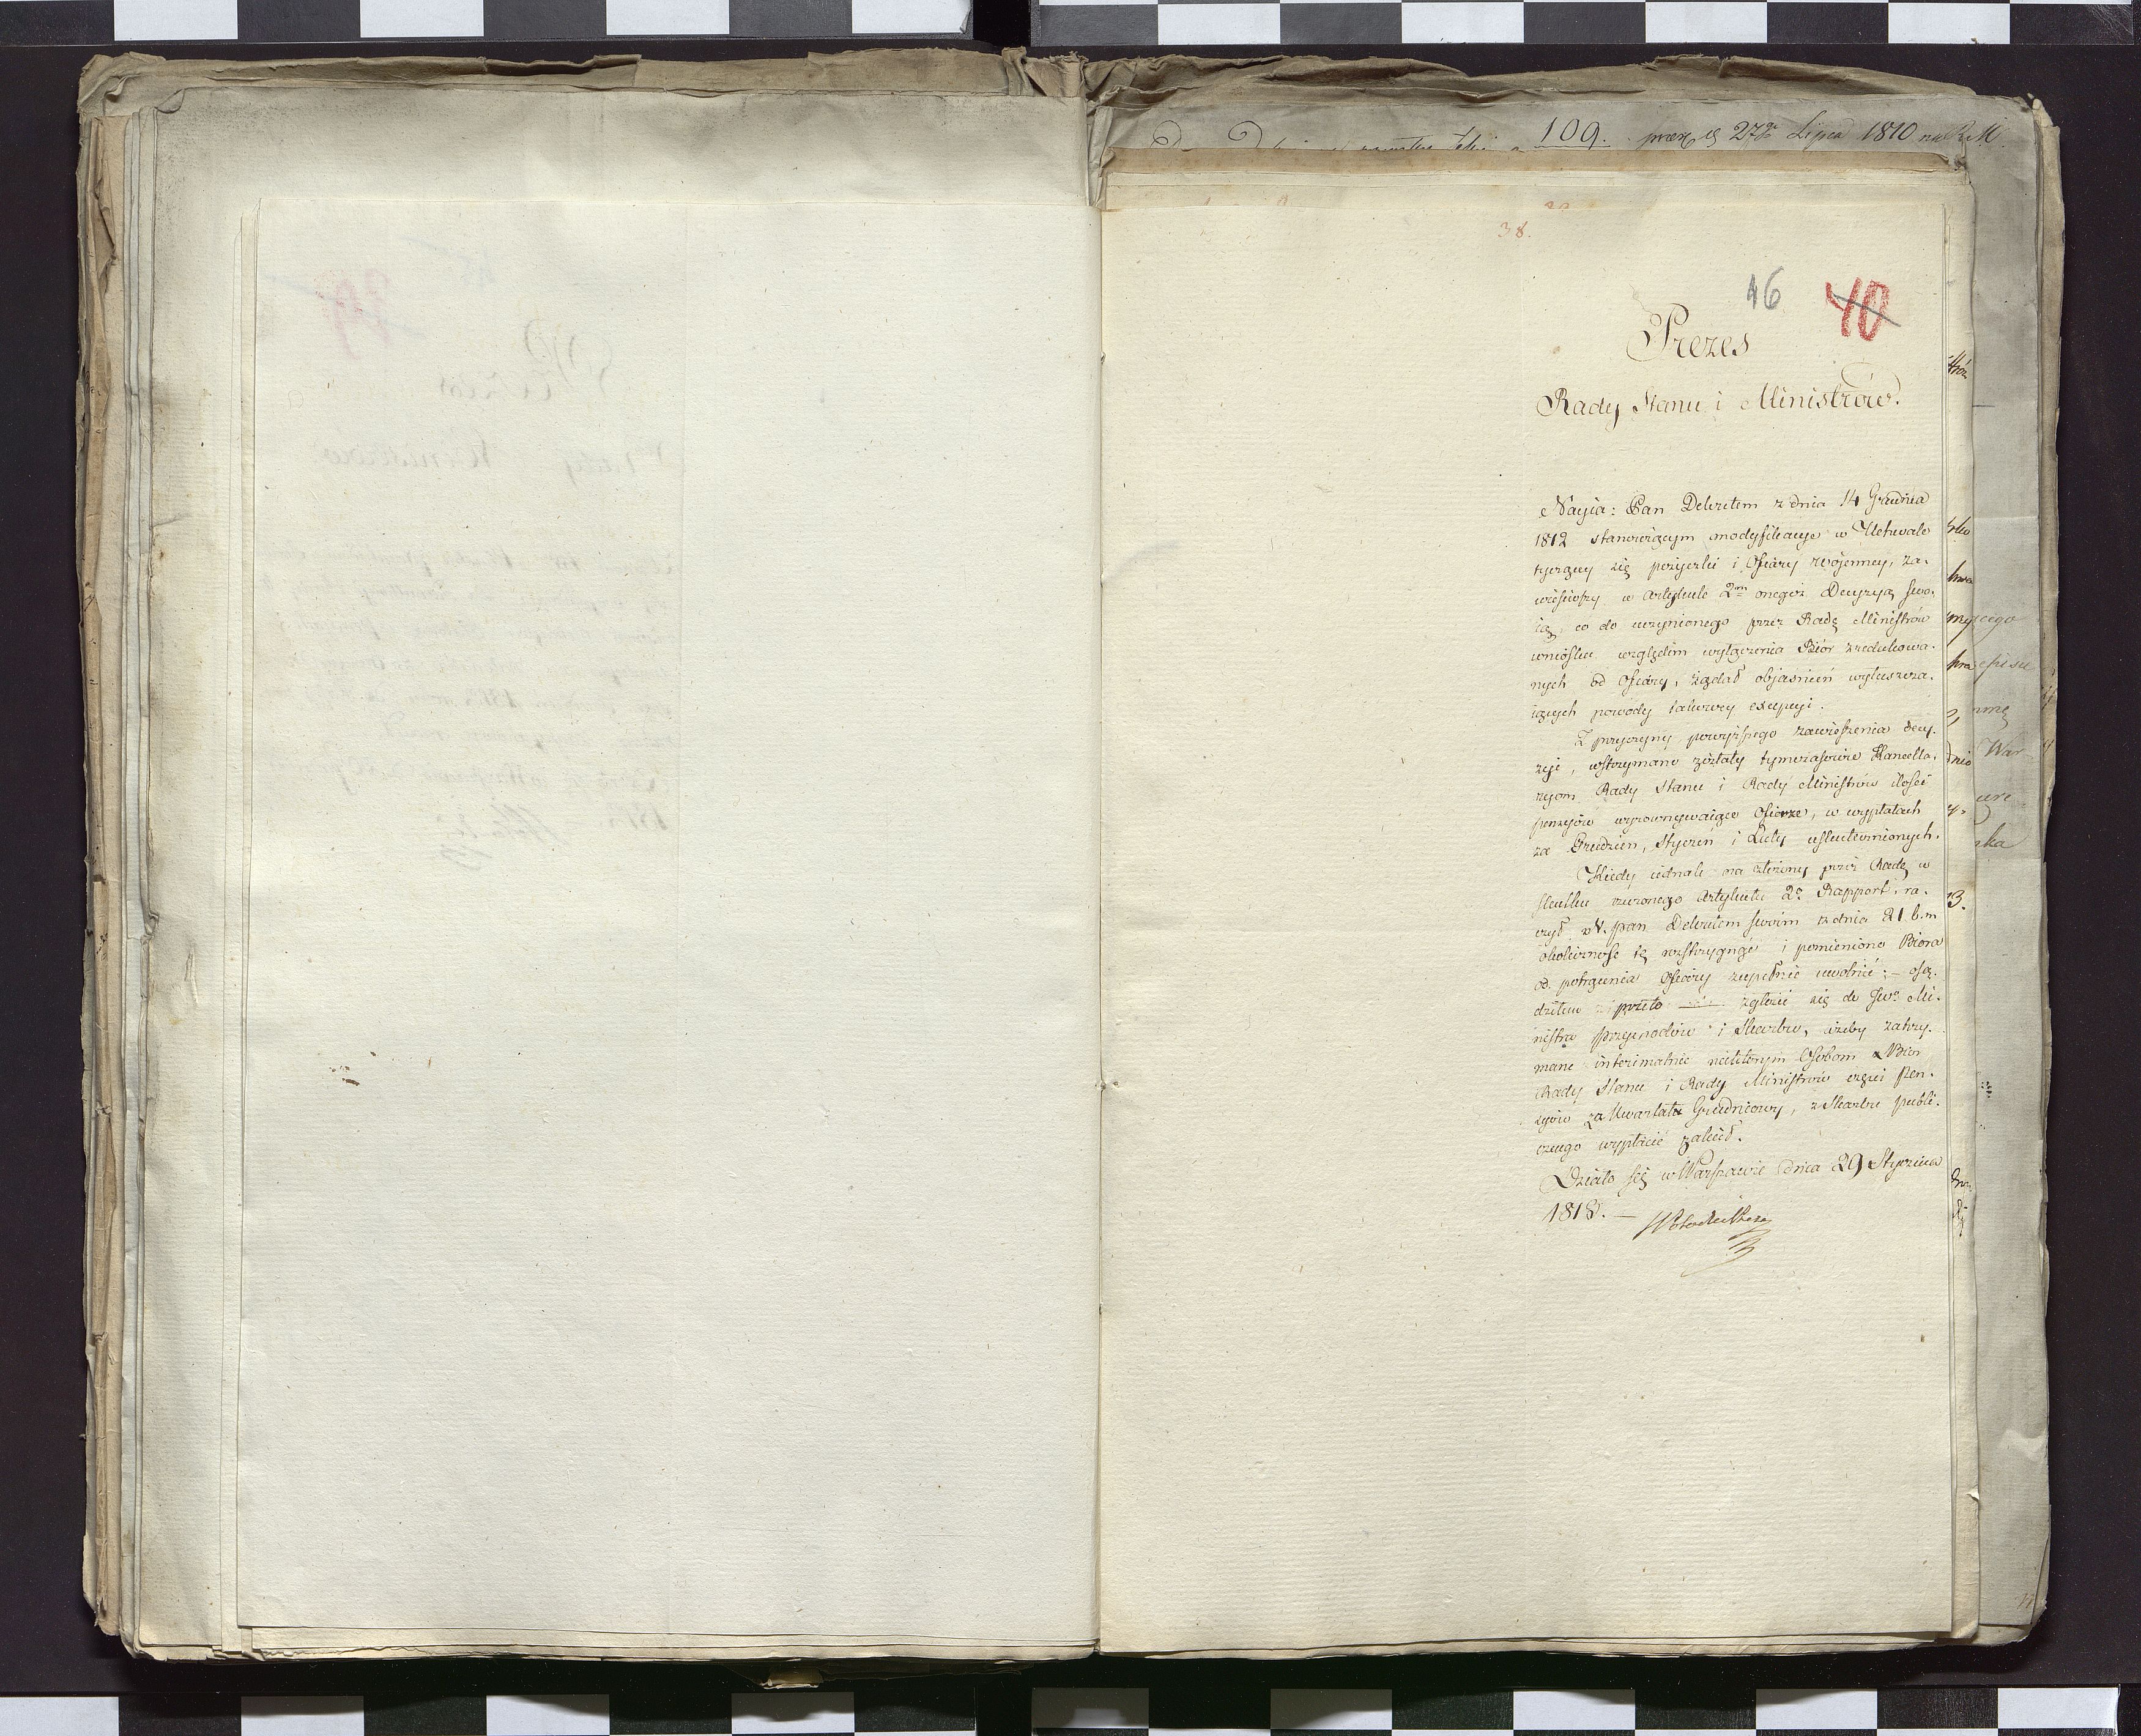 109. przez 27go Lipca 1810
38.
46 40
Prezes
Rady Stanu i Ministrów.
Nayia: Pan Dekretem z dnia 14 Grudnia
1812 stanowiącym modyfikacye w Uchwale
tyczącey się pożyczki i Ofiary woienney, za-
wiesiwszy w Artykule 2m onegoż Decyzyą swo-
ią, co do uczynionego przez Radę Ministrów
wniosku względem wyłączenia Biór zredukowa-
nych od Ofiary, żądał objaśnień wyłuszcza-
iących powody takowey excepcyi.
Z przyczyny powyższego zawieszenia decy-
zyi, wstrzymane zostały tymczasowie Kancella-
ryom Rady Stanu i Rady Ministrów ilości
pensyów wyrownywaiące Ofierze, w wypłatach
za Grudzień, Styczeń i Luty uskutecznionych.
Kiedy iednak na złożony przez Radę w
skutku rzeczonego Artykułu 2o Rapport, ra-
czył N. Pan Dekretem swoim z dnia 21 b. m
okoliczność tę rozstrzygnąć i pomienione Biora
od potrącenia Ofiary zupełnie uwolnić; – osą-
dziłem przeto zgłosić się do Jwo Mi-
nistra Przychodów i Skarbu, ażeby zatrzy-
mane interimalnie niektórym Osobom z Biór
Rady Stanu i Rady Ministrów części Pen-
syów za Kwartał Grudniowy, z Skarbu publi-
cznego wypłacić zalecił.
Działo się w Warszawie dnia 29 Stycznia
1813. –